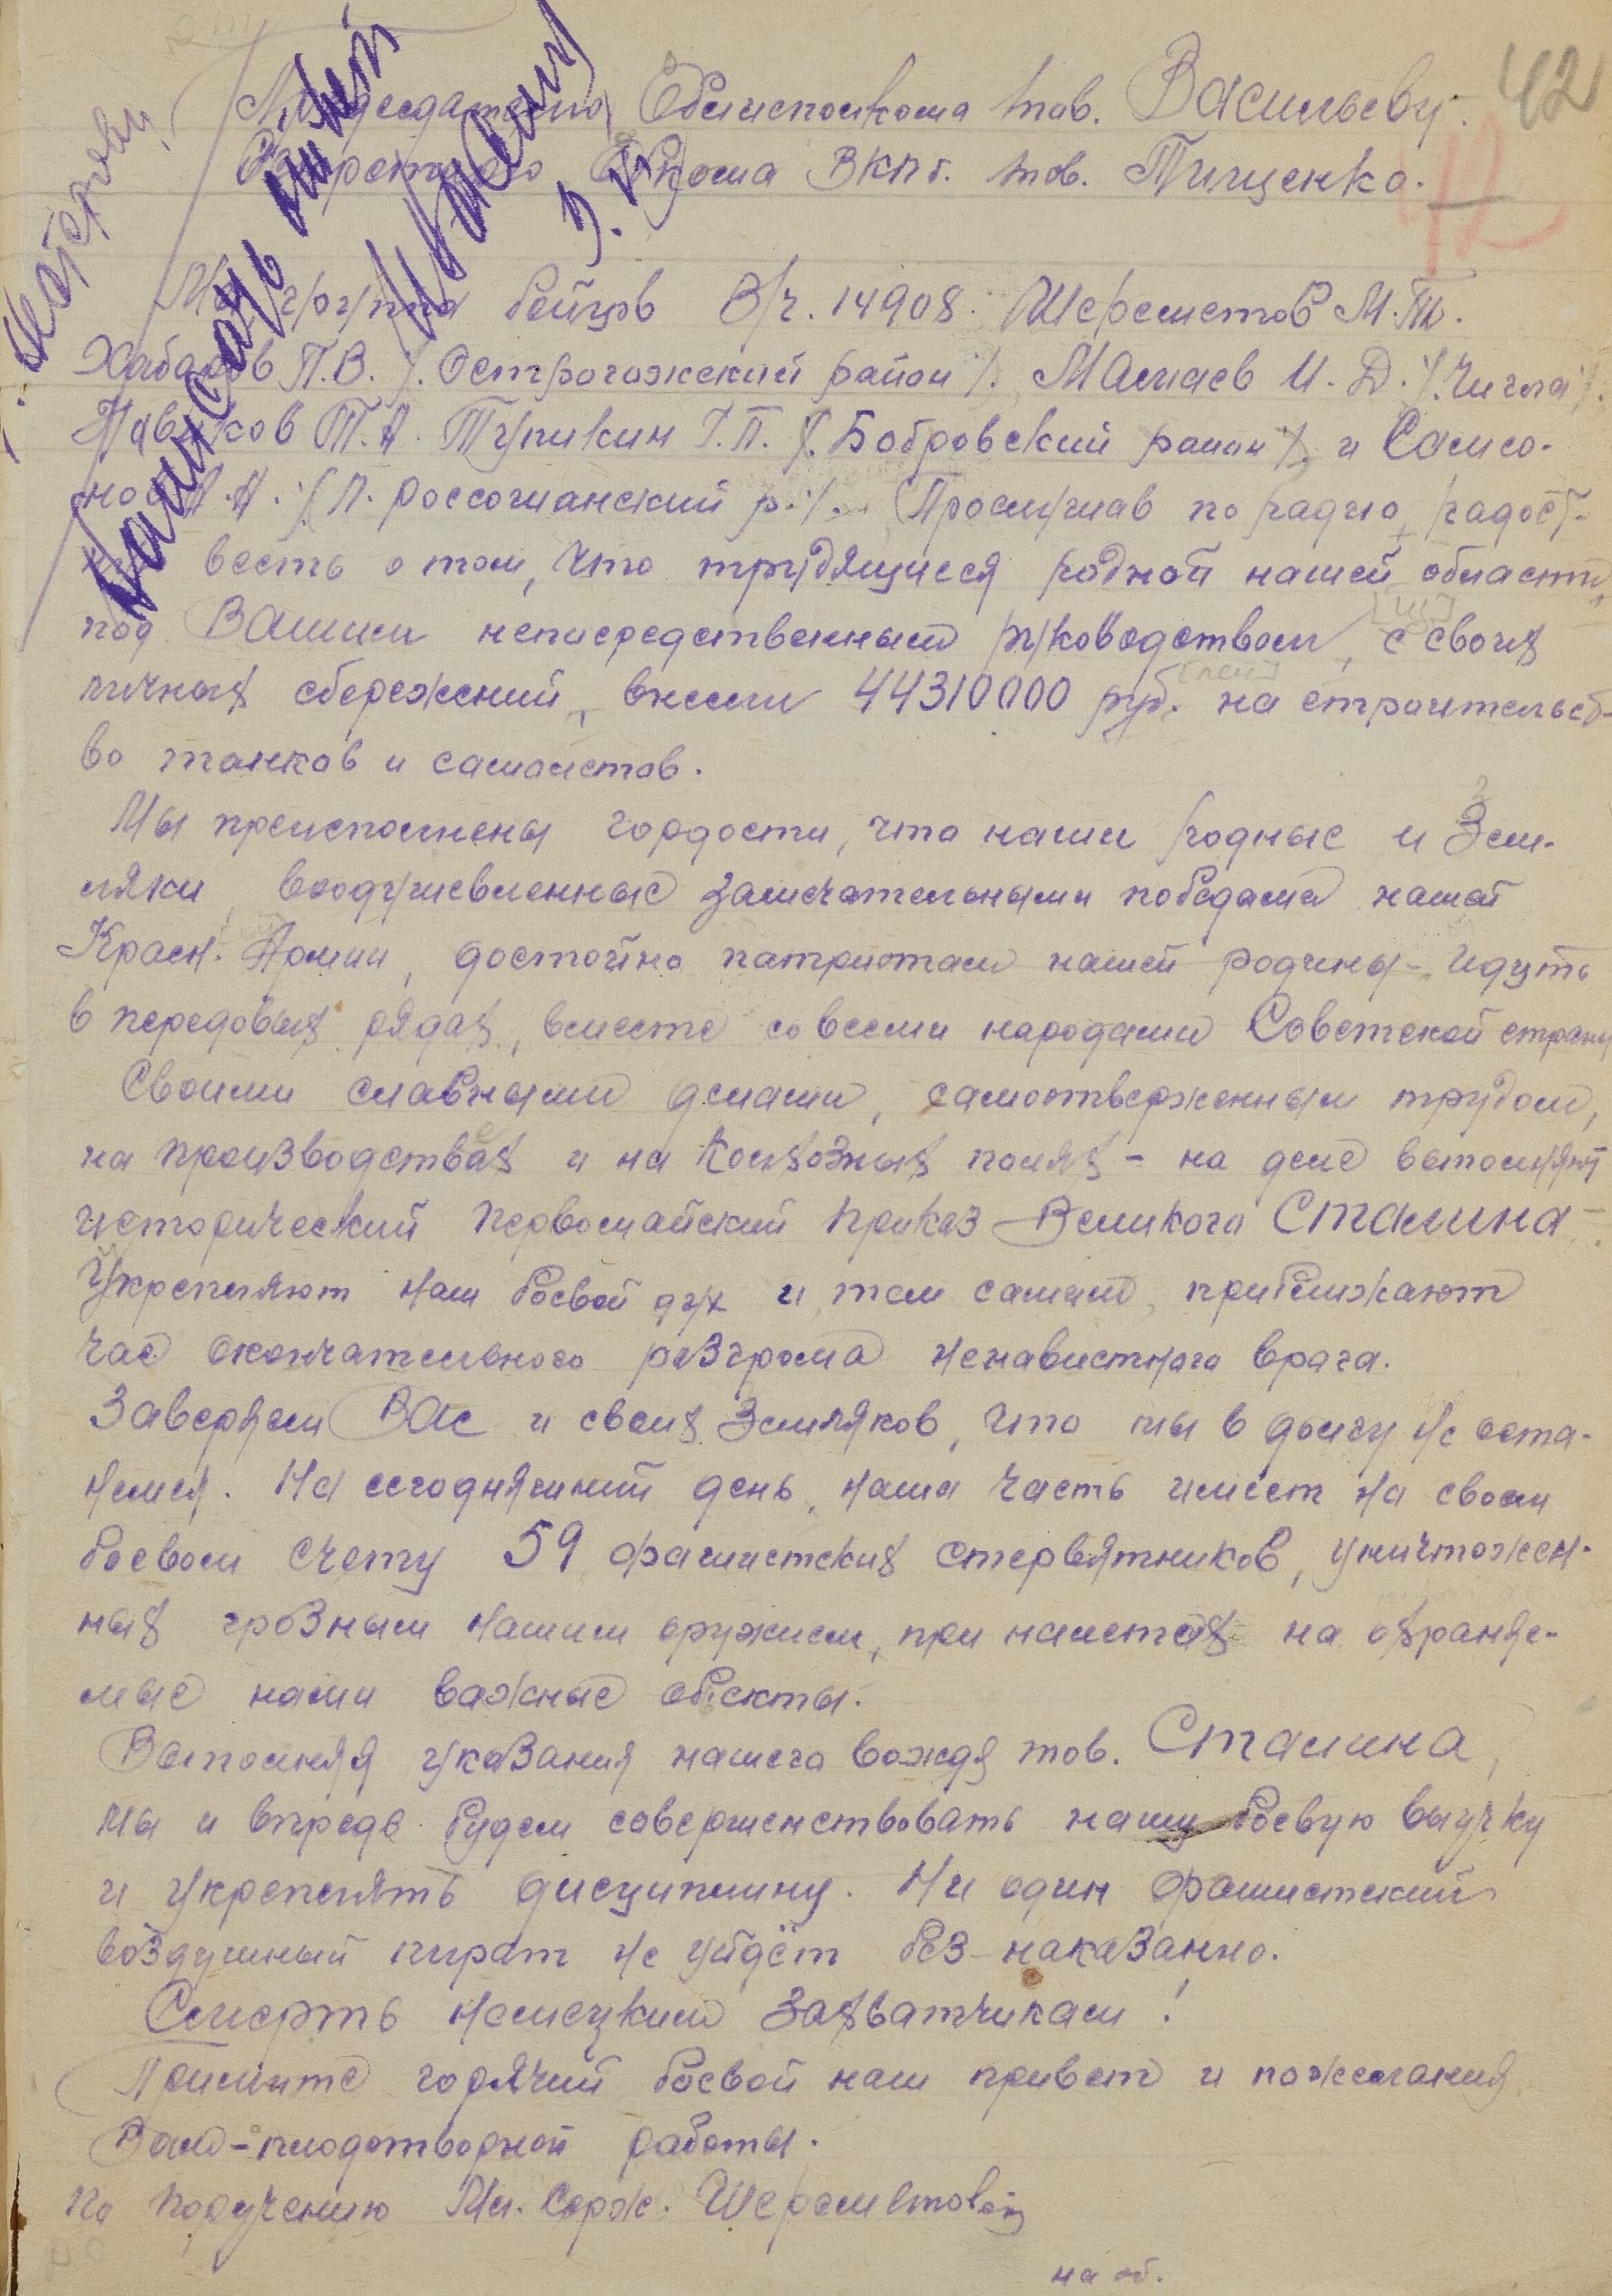 42
Председателю Облисполкома тов. Васильеву.
Секретарю Обкома ВКПб. тов. Тищенко.
42
Написать
Мы группа бойцов В/ч. 14908. Шереметов М.Т.
Хабаров П.В. /. Острогожский район /. Мамаев И. Д. /. Чигла /.
Новиков Т.А. Тупикин Г.П. /. Бобровский район /. и Самсо-
нов А.А. /. Л. россошанский р. /. Прослушав по радио, радост-
весть о том, что трудящиеся родной нашей области,
под Вашим неписредственным руководством, с своих
личных сбережений, внесли 44310000 руб. на строительст-
во танков и самолетов.
Мы преисполнены гордости, что наши родные и Зем-
ляки, воодушевленные замечательными победами нашей
Красн. Армии, достойно патриотам нашей родины - идуть
в передовых рядах, вместе со всеми народами Советской страны
Своими славными делами, самоотверженным трудом,
на производствах и на колхозных полях - на деле выполняют
исторический первомайский приказ Великого Сталина -
Укрепляют наш боевой дух и тем самым, приближают
час окончательного разгрома ненавистного врага.
Заверяем Вас и своих Земляков, что мы в долгу не оста-
немся. На сегодняшний день, наша часть имеет на своем
боевом счету 59 фашистских стервятников, уничтожен-
ных грозным нашим оружием, при налетах на охраняе-
мые нами важные обекты.
Выполняя указания нашего вождя тов. Сталина,
мы и впредь будем совершенствовать нашу боевую выучку
и укреплять дисциплину. Ни один фашистский
воздушный пират не уйдёт без-наказанно.
Смерть немецким захватчикам!
Примите горячий боевой наш привет и пожелания
Вам - плодотворной работы.
По поручению Мл. Серж. Шереметов
на об.